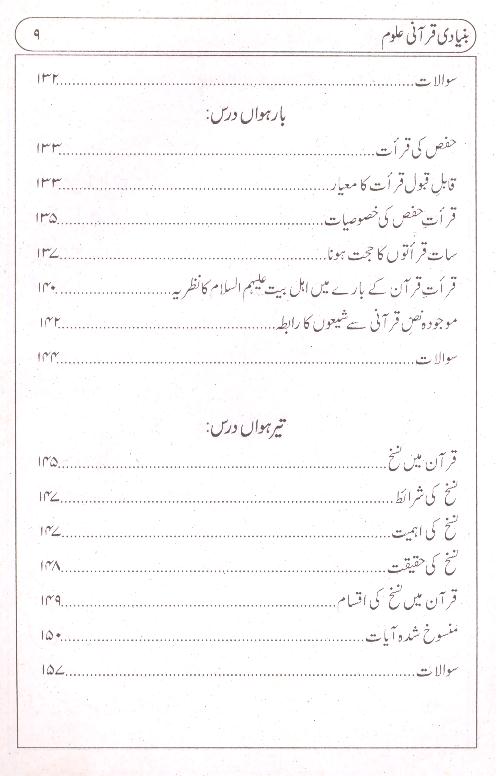 بنیادی قرآنی علوم ۹
سوالات ۱۳۲
بارہواں درس:
حفص کی قرأت ۱۳۳
قابلِ قبول قرأت کا معیار ۱۳۳
قرأتِ حفص کی خصوصیات ۱۳۵
سات قرأتوں کا حجت ہونا ۱۳۷
قرأتِ قرآن کے بارے میں اہل بیت علیہم السلام کا نظریہ ۱۴۰
موجودہ نصِ قرآنی سے شیعوں کا رابطہ ۱۴۲
سوالات ۱۴۴
تیرہواں درس:
قرآن میں نسخ ۱۴۵
نسخ کی شرائط ۱۴۷
نسخ کی اہمیت ۱۴۷
نسخ کی حقیقت ۱۴۸
قرآن میں نسخ کی اقسام ۱۴۹
منسوخ شدہ آیات ۱۵۰
سوالات ۱۵۷